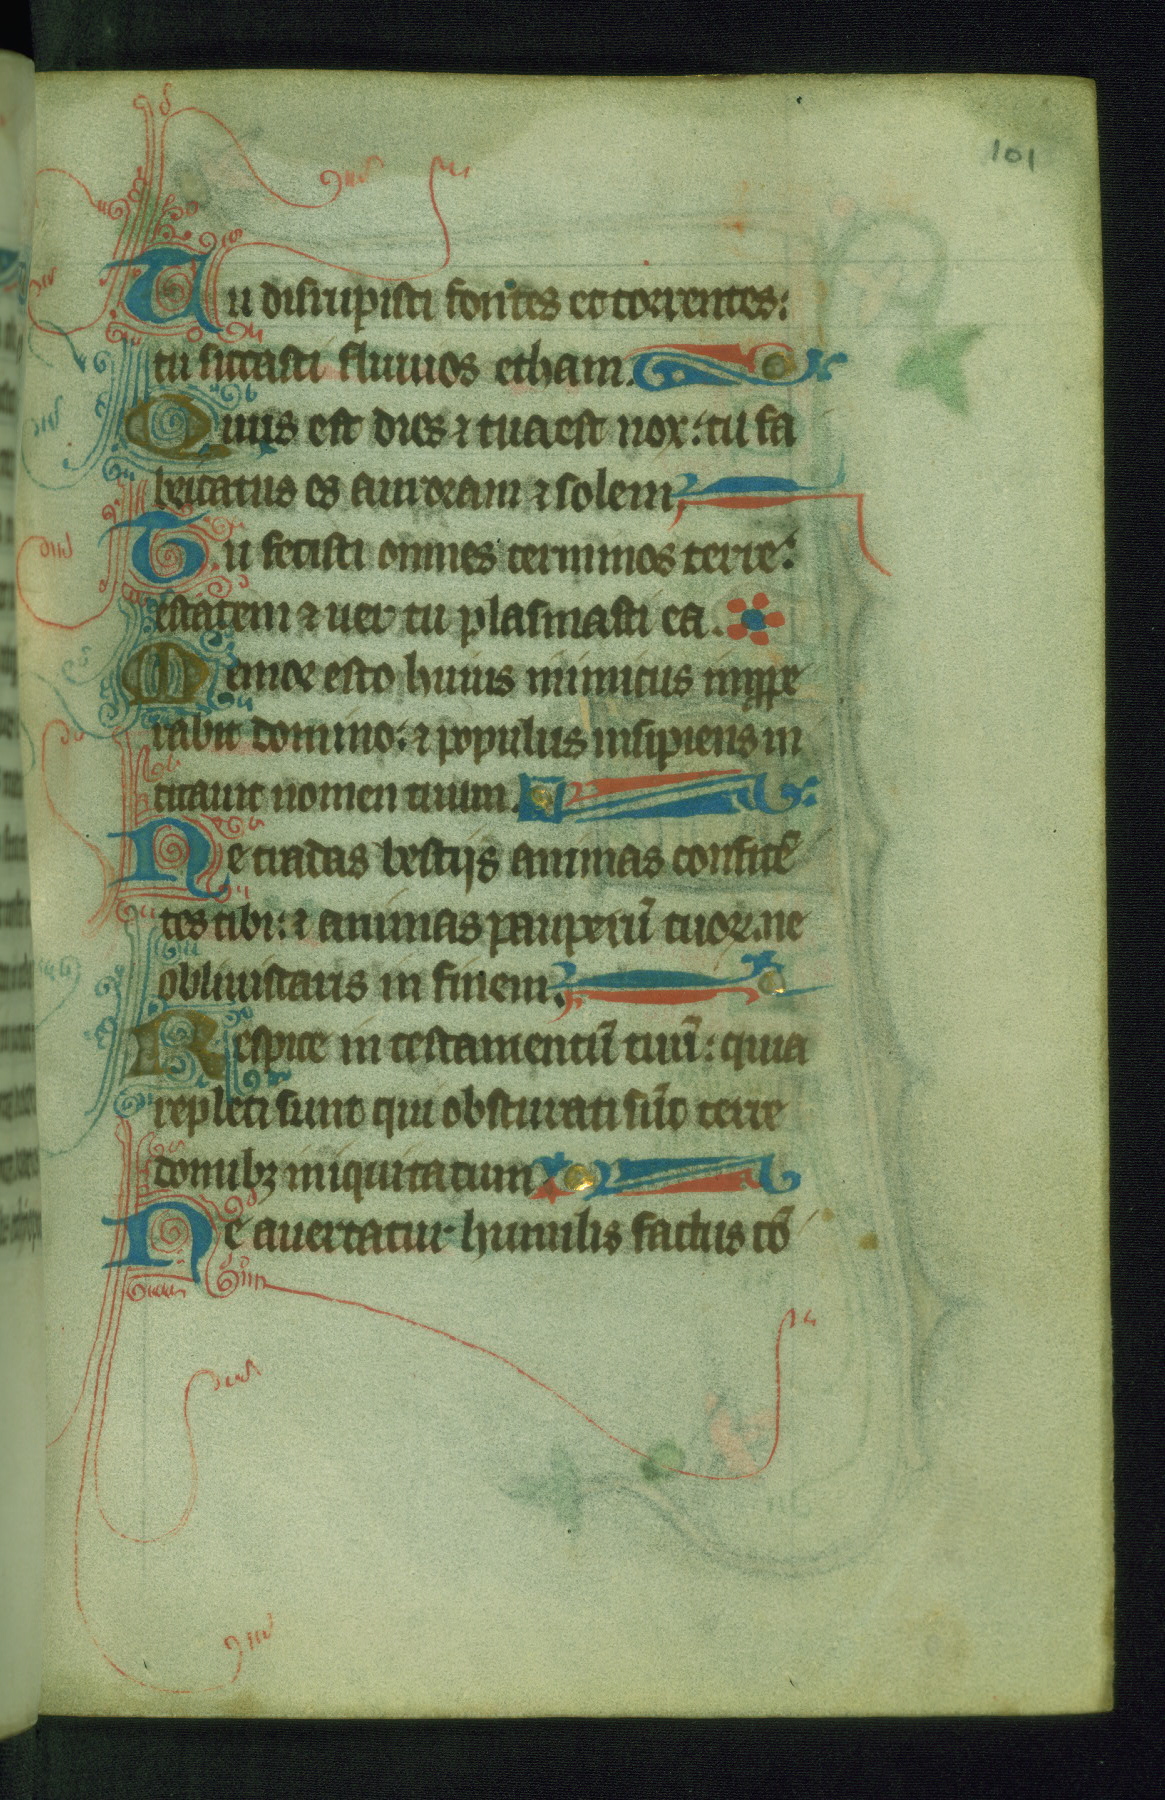 101
Tu disrupisti fontes et torrentes:
tu siccasti fluuios etham.
Tuus est dies ⁊ tua est nox: tu fa
bricatus es auroram ⁊ solem.
Tu fecisti omnes terminos terre:
estatem ⁊ uer tu plasmasti ea.
Memor esto huius inimicus impꝓpe
rabit domino: ⁊ populus insipiens in
citauit nomen tuum.
Ne tradas bestijs animas confitē
tes tibi: ⁊ animas pauperū tuoꝝ. ne
obliuiscaris in finem.
Respice in testamentū tuū: quia
repleti sunt qui obscurati sūt terre
domibꝫ iniquitatum
Ne auertatur humilis factus cō